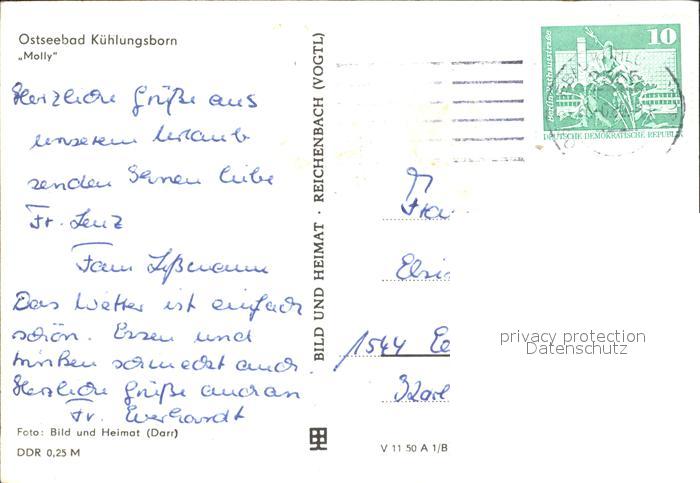 Ostseebad Kühlungsborn
„Molly"
Herzliche Grüße aus
unserem Urlaub
senden Ihnen liebe
Fr. Lenz
Fam Lißmann
Das Wetter ist einfach
schön. Essen und
trinken schmeckt auch.
Herzliche Grüße auch an
Fr. Everhardt
Foto: Bild und Heimat (Darr)
DDR 0,25 M
BILD UND HEIMAT · REICHENBACH (VOGTL)
V 11 50 A 1/B
10
Berlin-Rathausstraße
DEUTSCHE DEMOKRATISCHE REPUBLIK
Frau
1544
privacy protection
Datenschutz